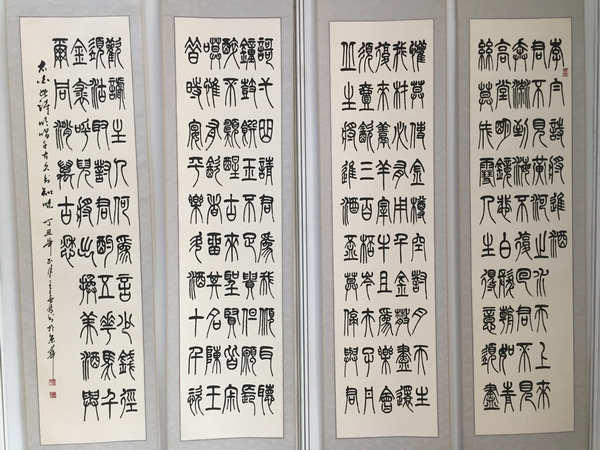 李白詩將進酒
君不見黃河之水天上來
奔流到海不復回君不見
高堂明鏡悲白髮朝如青
絲暮成雪人生得意須盡
懽莫使金樽空對月天生
我材必有用千金散盡還
復來烹羊宰牛且為樂會
須壹飲三百杯岑夫子丹
丘生將進酒杯莫停與君
謌弌曲請君為我傾耳聽
鐘鼓饌玉不足貴但願長
醉不願醒古來聖賢皆寂
寞惟有飲者留其名陳王
昔時宴平樂斗酒十千恣
歡謔主人何為言少錢徑
須沽取對君酌五花馬千
金裘呼兒將出換美酒與
爾同消萬古愁
太白此詩 丁丑年 於京華